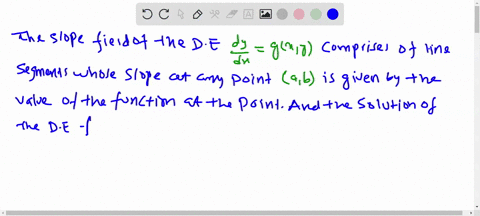 The slope field of the D.E dy/dx = g(x,y) comprises of line
segments whose slope at any point (a,b) is given by the
value of the function at the point. And the solution of
the D.E f